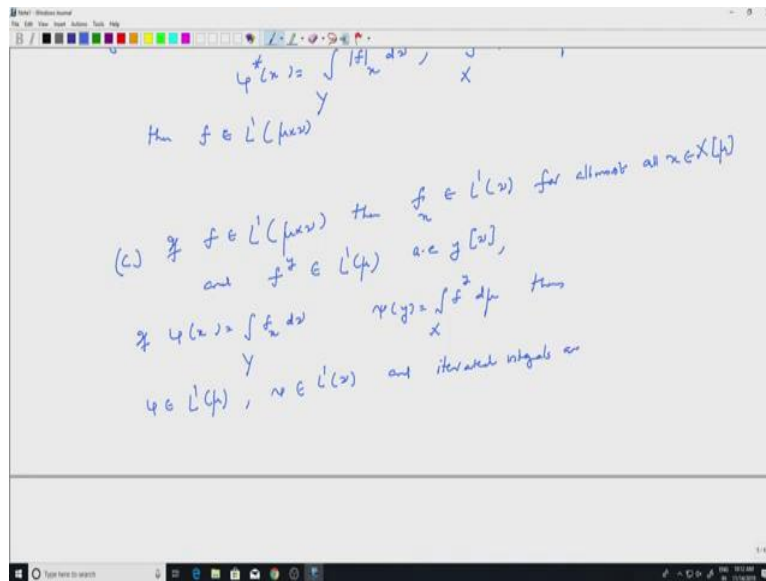 Note1 - Windows Journal
File Edit View Insert Actions Tools Help
φ*(x) = ∫_Y |f|_x dν , X
then f ∈ L¹(μ×ν)
(c) If f ∈ L¹(μ×ν) then f_x ∈ L¹(ν) for allmost all x ∈ X [μ]
and f^y ∈ L¹(μ) a.e y [ν],
If φ(x) = ∫_Y f_x dν ψ(y) = ∫_X f^y dμ then
φ ∈ L¹(μ), ψ ∈ L¹(ν) and iterated integrals are
Type here to search